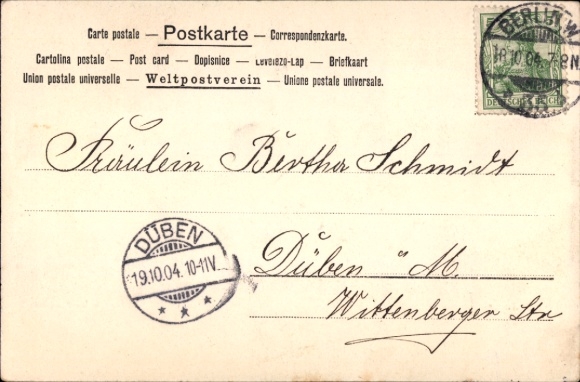 Carte postale — Postkarte — Correspondenzkarte.
Cartolina postale — Post card — Dopisnice — Levelező-Lap — Briefkaart
Union postale universelle — Weltpostverein — Unione postale universale.
BERLIN W
18.10.04. 7-8N.
DEUTSCHES REICH
Fräulein Bertha Schmidt
DÜBEN
19.10.04. 10-11V.
* * *
Düben a M.
Wittenberger Str